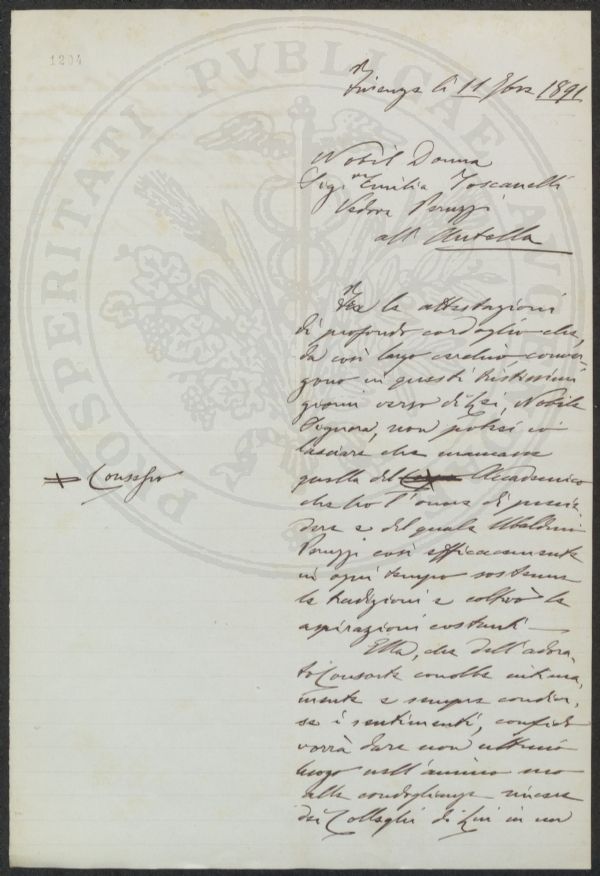 1204
PROSPERITATI PUBLICAE AUGE
Firenze li 11 9bre 1891
Nobil Donna
Sigra Emilia Toscanelli
Vedova Peruzzi
all' Antella
Fra le attestazioni
di profondo cordoglio che,
da così largo cerchio, conver-
gono in questi tristissimi
giorni verso di Lei, Nobile
Signora, non potrei io
lasciare che mancasse
quella del Accademico
+ Consesso
che ho l'onore di presie-
dere e del quale Ubaldino
Peruzzi così efficacemente
in ogni tempo sostenne
le tradizioni e coltivò le
aspirazioni costanti —
Ella, che dell'adora-
to Consorte conobbe intima-
mente e sempre condivi-
se i sentimenti, confido
vorrà dare non ultimo
luogo nell'animo suo
alle condoglianze
dei Colleghi di Lui in un